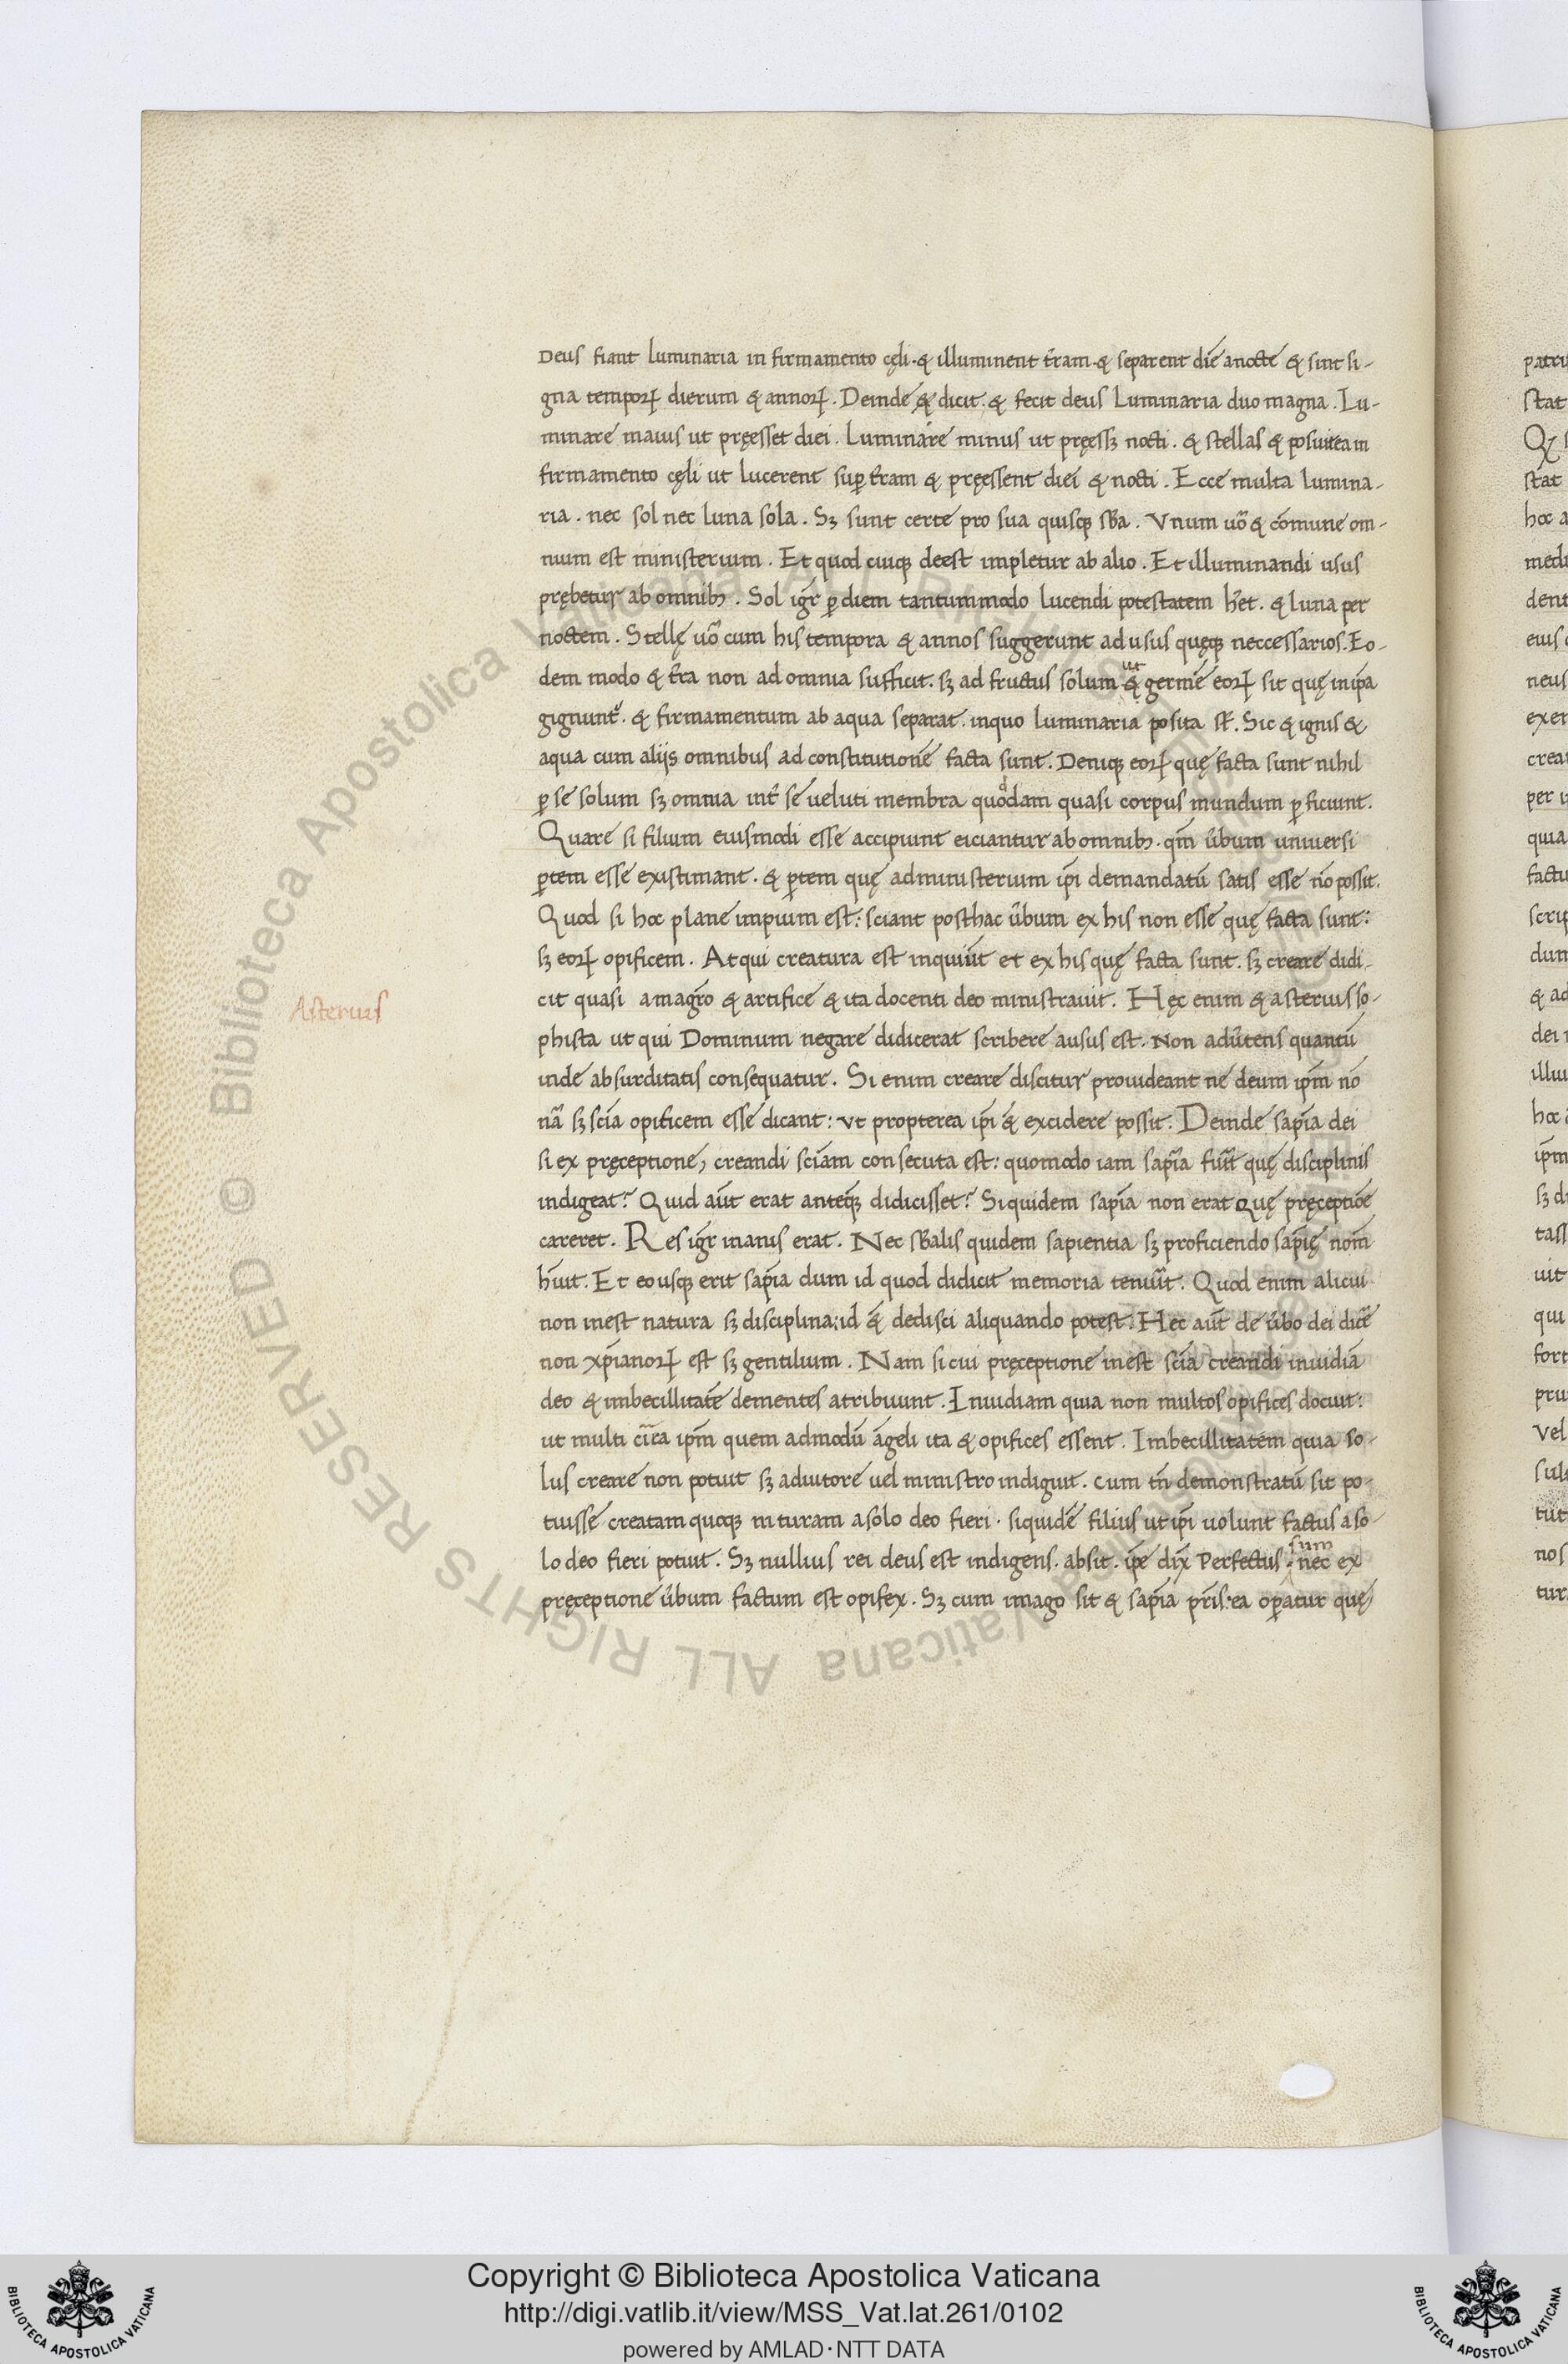 Deus fiant luminaria in firmamento cęli · & illuminent t̄ram · & separent diē a nocte & sint si-
gna tempoꝝ dierum & annoꝝ . Deinde & dicit · & fecit deus Luminaria duo magna . Lu-
minare maius ut pręesset diei . Luminare minus ut pręessꝫ nocti . & stellas & posuit ea in
firmamento cęli ut lucerent suꝑ t̄ram & pręessent diei & nocti . Ecce multa lumina-
ria . nec sol nec luna sola . Sꝫ sunt certe pro sua quisqꝫ sb̄a . Vnum uō & cōmune om-
nium est ministerium . Et quod cuiqꝫ deest impletur ab alio . Et illuminandi usus
prębetur ab omnibꝫ . Sol igr̄ ꝑ diem tantummodo lucendi potestatem h̄et . & luna per
noctem . Stellę uō cum his tempora & annos suggerunt ad usus quęqꝫ neccessarios . Eo-
dem modo & t̄ra non ad omnia sufficit . sꝫ ad fructus solum ut & germē eoꝝ sit quę in ip̄a
gignunt᷑ . & firmamentum ab aqua separat . in quo luminaria posita st̄ . Sic & ignis &
aqua cum alijs omnibus ad constitutionē facta sunt . Deniqꝫ eoꝝ quę facta sunt nihil
ꝑ se solum sꝫ omnia int̄ se ueluti membra quoddam quasi corpus mundum ꝑficiunt .
Quare si filium eiusmodi esse accipiunt eiciantur ab omnibꝫ . qm̄ ūbum uniuersi
ꝑtem esse existimant . & ꝑtem quę ad ministerium ip̄i demandatū satis esse nō possit .
Quod si hoc plane impium est : sciant posthac ūbum ex his non esse quę facta sunt :
sꝫ eoꝝ opificem . At qui creatura est inquiūt et ex his quę facta sunt . sꝫ creare didi-
cit quasi a magr̄o & artifice & ita docenti deo ministrauit . Hęc enim & asterius so-
Asterius
phista ut qui Dominum negare didicerat scribere ausus est . Non adūtens quantū
inde absurditatis consequatur . Si enim creare discitur prouideant ne deum ip̄m nō
nā sꝫ scīa opificem esse dicant : ut propterea ip̄i & excidere possit . Deinde sapīa dei
si ex pręceptione, creandi sciam consecuta est : quomodo iam sapīa fuīt quę disciplinis
indigeat ? Quid aūt erat anteqꝫ didicisset ? Siquidem sapīa non erat quę pręceptiōe
careret . Res igr̄ inanis erat . Nec sb̄alis quidem sapientia sꝫ proficiendo sapīę nom̄
h̄uit . Et eo usqꝫ erit sapīa dum id quod didicit memoria tenuīt . Quod enim alicui
non inest natura sꝫ disciplina : id & dedisci aliquando potest . Hec aūt de ūbo dei dicē
non xp̄ianoꝝ est sꝫ gentilium . Nam si cui pręceptione inest scīa creandi inuidiā
deo & imbecillitatē dementes atribuunt . Inuidiam quia non multos opifices docuit :
ut multi cīrca ip̄m quem admodū āgeli ita & opifices essent . Imbecillitatem quia so-
lus creare non potuit sꝫ adiutore uel ministro indiguit . cum tn̄ demonstratū sit po-
tuisse creatam quoqꝫ naturam a solo deo fieri . siquidē filius ut ip̄i uolunt factus a so-
lo deo fieri potuit . Sꝫ nullius rei deus est indigens . absit . ip̄e dix̄ Perfectus sum . nec ex
pręceptione ūbum factum est opifex . Sꝫ cum imago sit & sapīa pr̄is . ea oꝑatur quę
Copyright © Biblioteca Apostolica Vaticana
http://digi.vatlib.it/view/MSS_Vat.lat.261/0102
powered by AMLAD·NTT DATA